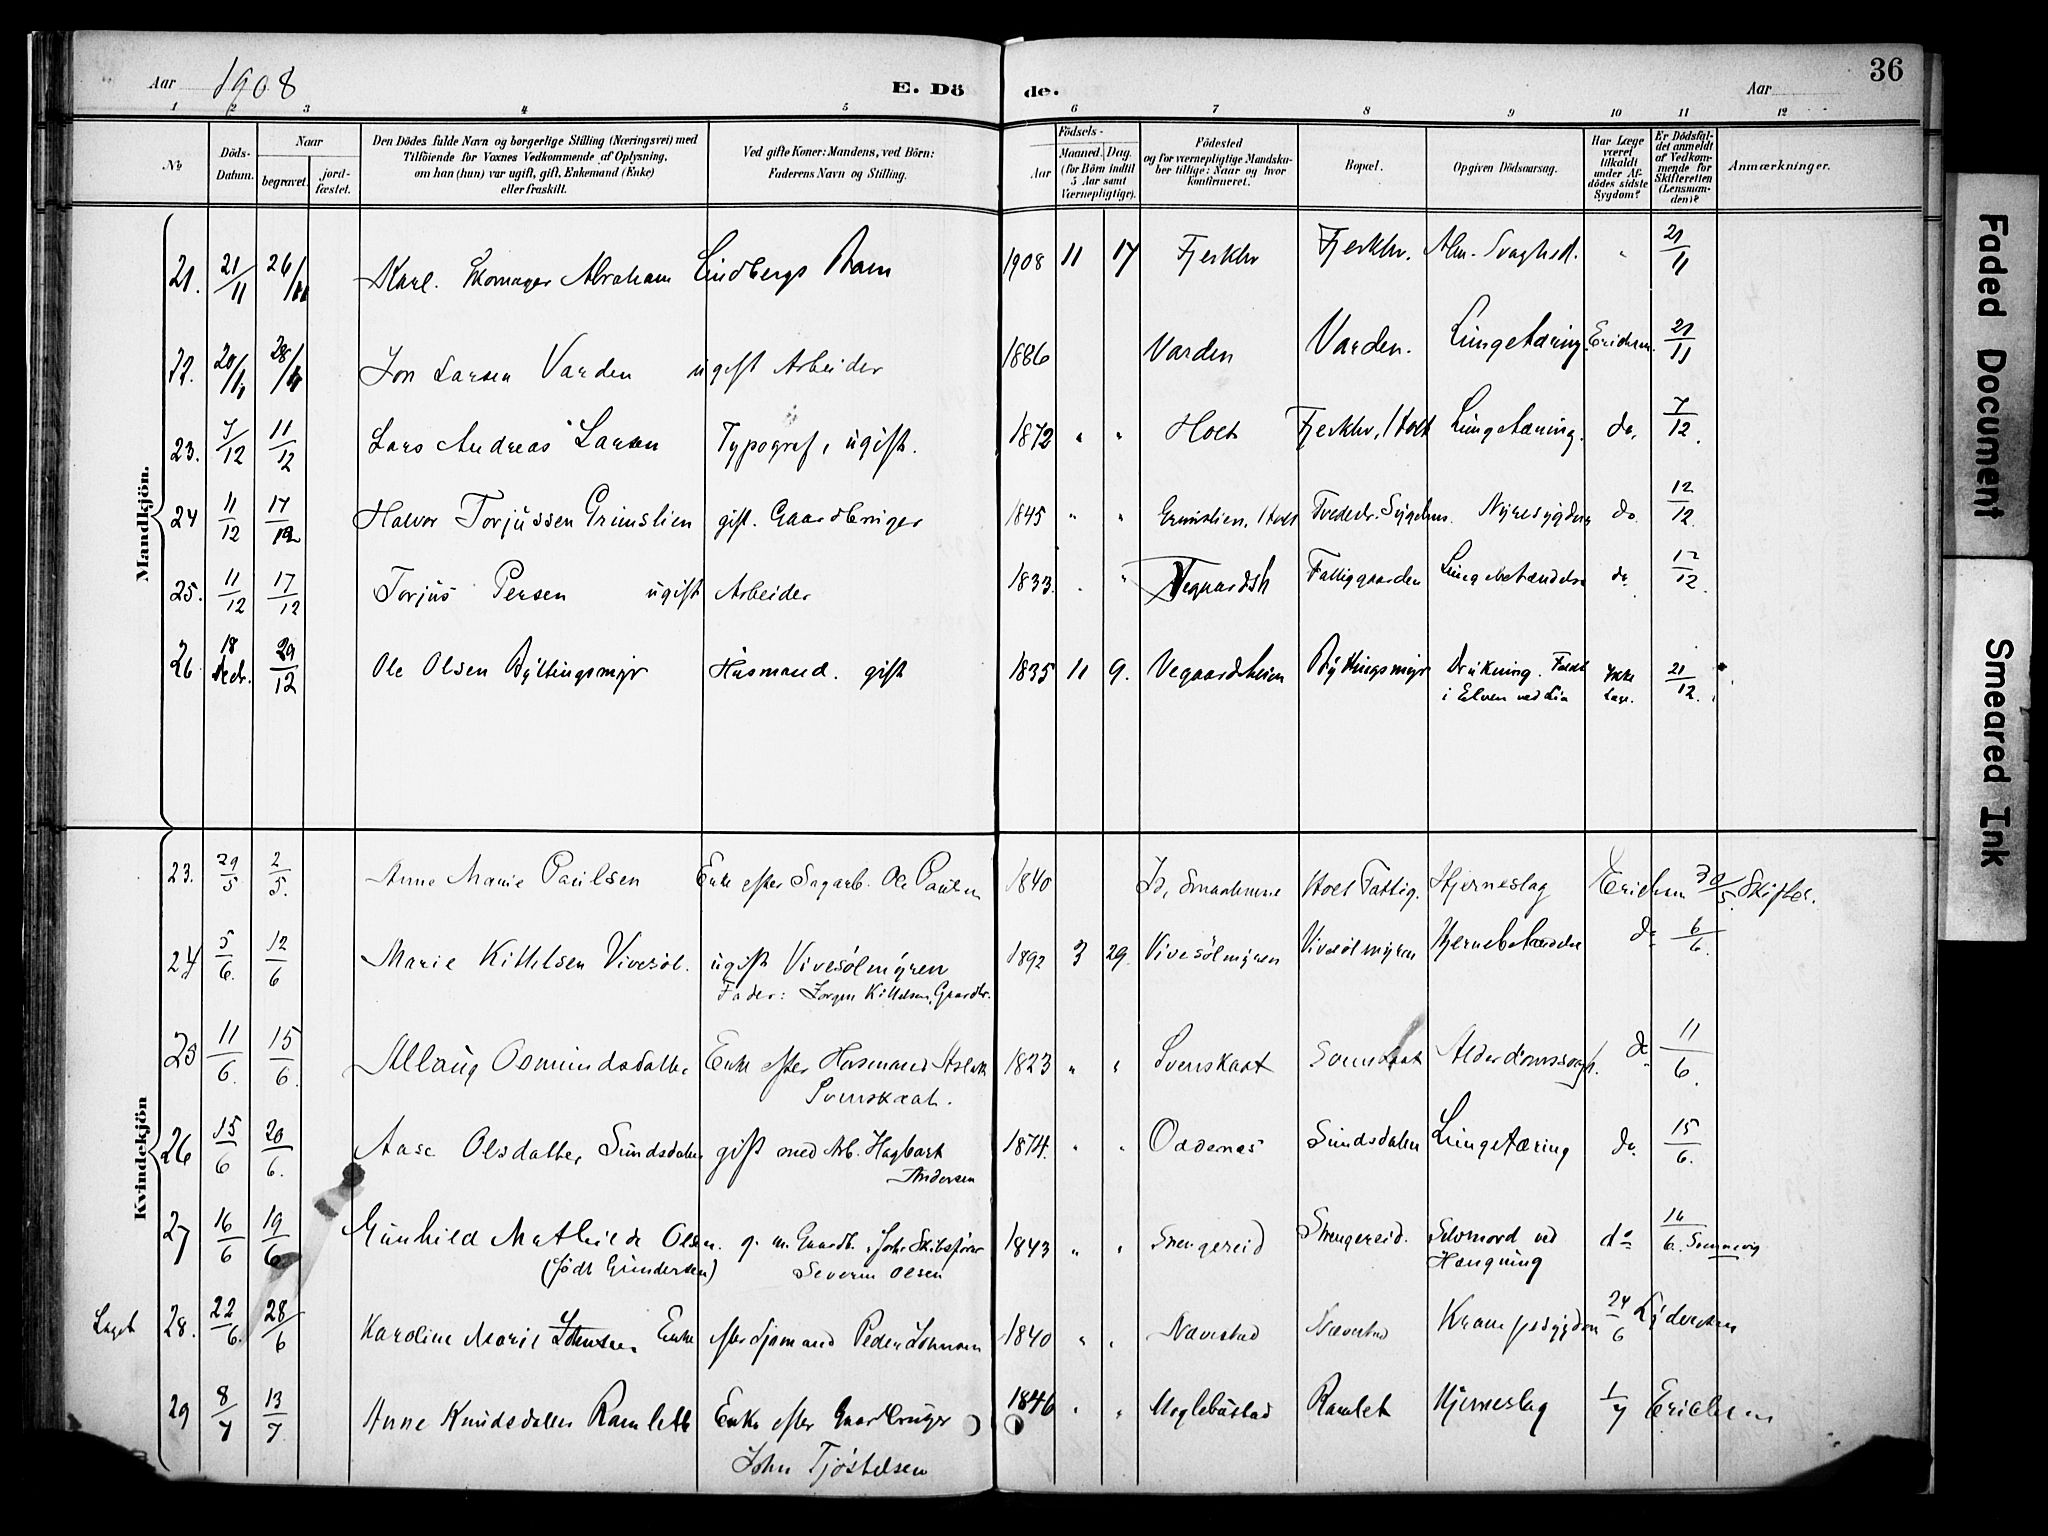 Aar 1908 E. Döde. Aar 36
1 2 3 4 5 6 7 8 9 10 11 12
No. Döds-Datum. Naar begravet. jordfæstet. Den Dödes fulde Navn og borgerlige Stilling (Næringsvei) med Tilföiende for Voxnes Vedkommende af Oplysning, om han (hun) var ugift, gift, Enkemand (Enke) eller fraskilt. Ved gifte Koner: Mandens, ved Börn: Faderens Navn og Stilling. Födsels- Aar Maaned. Dag. (for Börn indtil 5 Aar samt Værnepligtige). Födested og for værnepligtige Mandskaber tillige: Naar og hvor konfirmeret. Bopæl. Opgiven Dödsaarsag. Har Læge været tilkaldt under Afdödes sidste Sygdom? Er Dödsfaldet anmeldt af Vedkommende for Skifteretten (Lensmanden)? Anmærkninger.
Mandkjön.
21. 21/11 26/11 Karl. Skomager Abraham Lindbergs Barn 1908 11 17 Fjerkln Fjerkln. Alm. Svaghed. " 21/11
20/11 28/11 Jon Larsen Varden ugift Arbeider 1886 Varden Varden. Lungetæring. Erichsen. 21/11
23. 7/12 11/12 Lars Andreas Larsen Typograf, ugift. 1872 " " Holt Lungetæring. do. 7/12.
24 11/12 17/12 Halvor Torjussen Grimslien gift. Gaardbruger 1845 " " Grimslien, Holt Tvedestr. Sygehus. Nyresygdom do. 12/12.
25. 11/12 17/12 Torjus Persen ugift Arbeider 1833. " " Vegaardsh Fattiggaarden Lungebetændelse do. 12/12.
26. 18 Decbr. 29/12 Ole Olsen Byttingsmyr Husmand. gift 1835 11 9. Vegaardsheien Byttingsmyr Drukning. Faldt i Elven ved Lia Ikke Læge. 21/12.
Kvindekjön
23. 29/5 2/5. Anne Marie Paulsen Enke efter Sagarb. Ole Paulsen 1840 Holt Fattig. Hjerneslag Erichsen 30/5. Skifter.
24 5/6. 12/6 Marie Kittelsen Vivesöl. ugift Vivesölmyren 1892 3 29. Vivesölmyren Vivesölmyren Hjernebetændelse do 6/6.
Fader: Jørgen Kittelsen, Gaardbr.
25 11/6. 15/6. Allaug Osmundsdatter Enke efter Husmand Aslak 1823 " " Svenskaat Svenskaat Alderdomssvagh. do 11/6.
Svenskaat.
26 15/6 20/6. Aase Olsdatter Sundsdalen gift med Arb. Hagbart 1874. " " Oddernes Sundsdalen Lungetæring do. 15/6.
Andersen
27 16/6 19/6 Gunhild Mathilde Olsen. g. m. Gaardb. Skibsfører 1843 " " Strengereid Strengereid. Selvmord ved do 16/6.
(född Gundersen) Severin Olsen Hængning
Laget 28. 22/6. 28/6 Karoline Marie Johnsen Enke efter Sjømand Peder Johnsen 1840 " " Nævestad Nævestad Krampesygdom 24/6
29 8/7 13/7. Anne Knudsdatter Ramlet Enke efter Gaardbruger 1846 " " Moglebustad Ramlet Hjerneslag 1/7 Erichsen
John Tjöstelsen
Faded Document
Smeared Ink